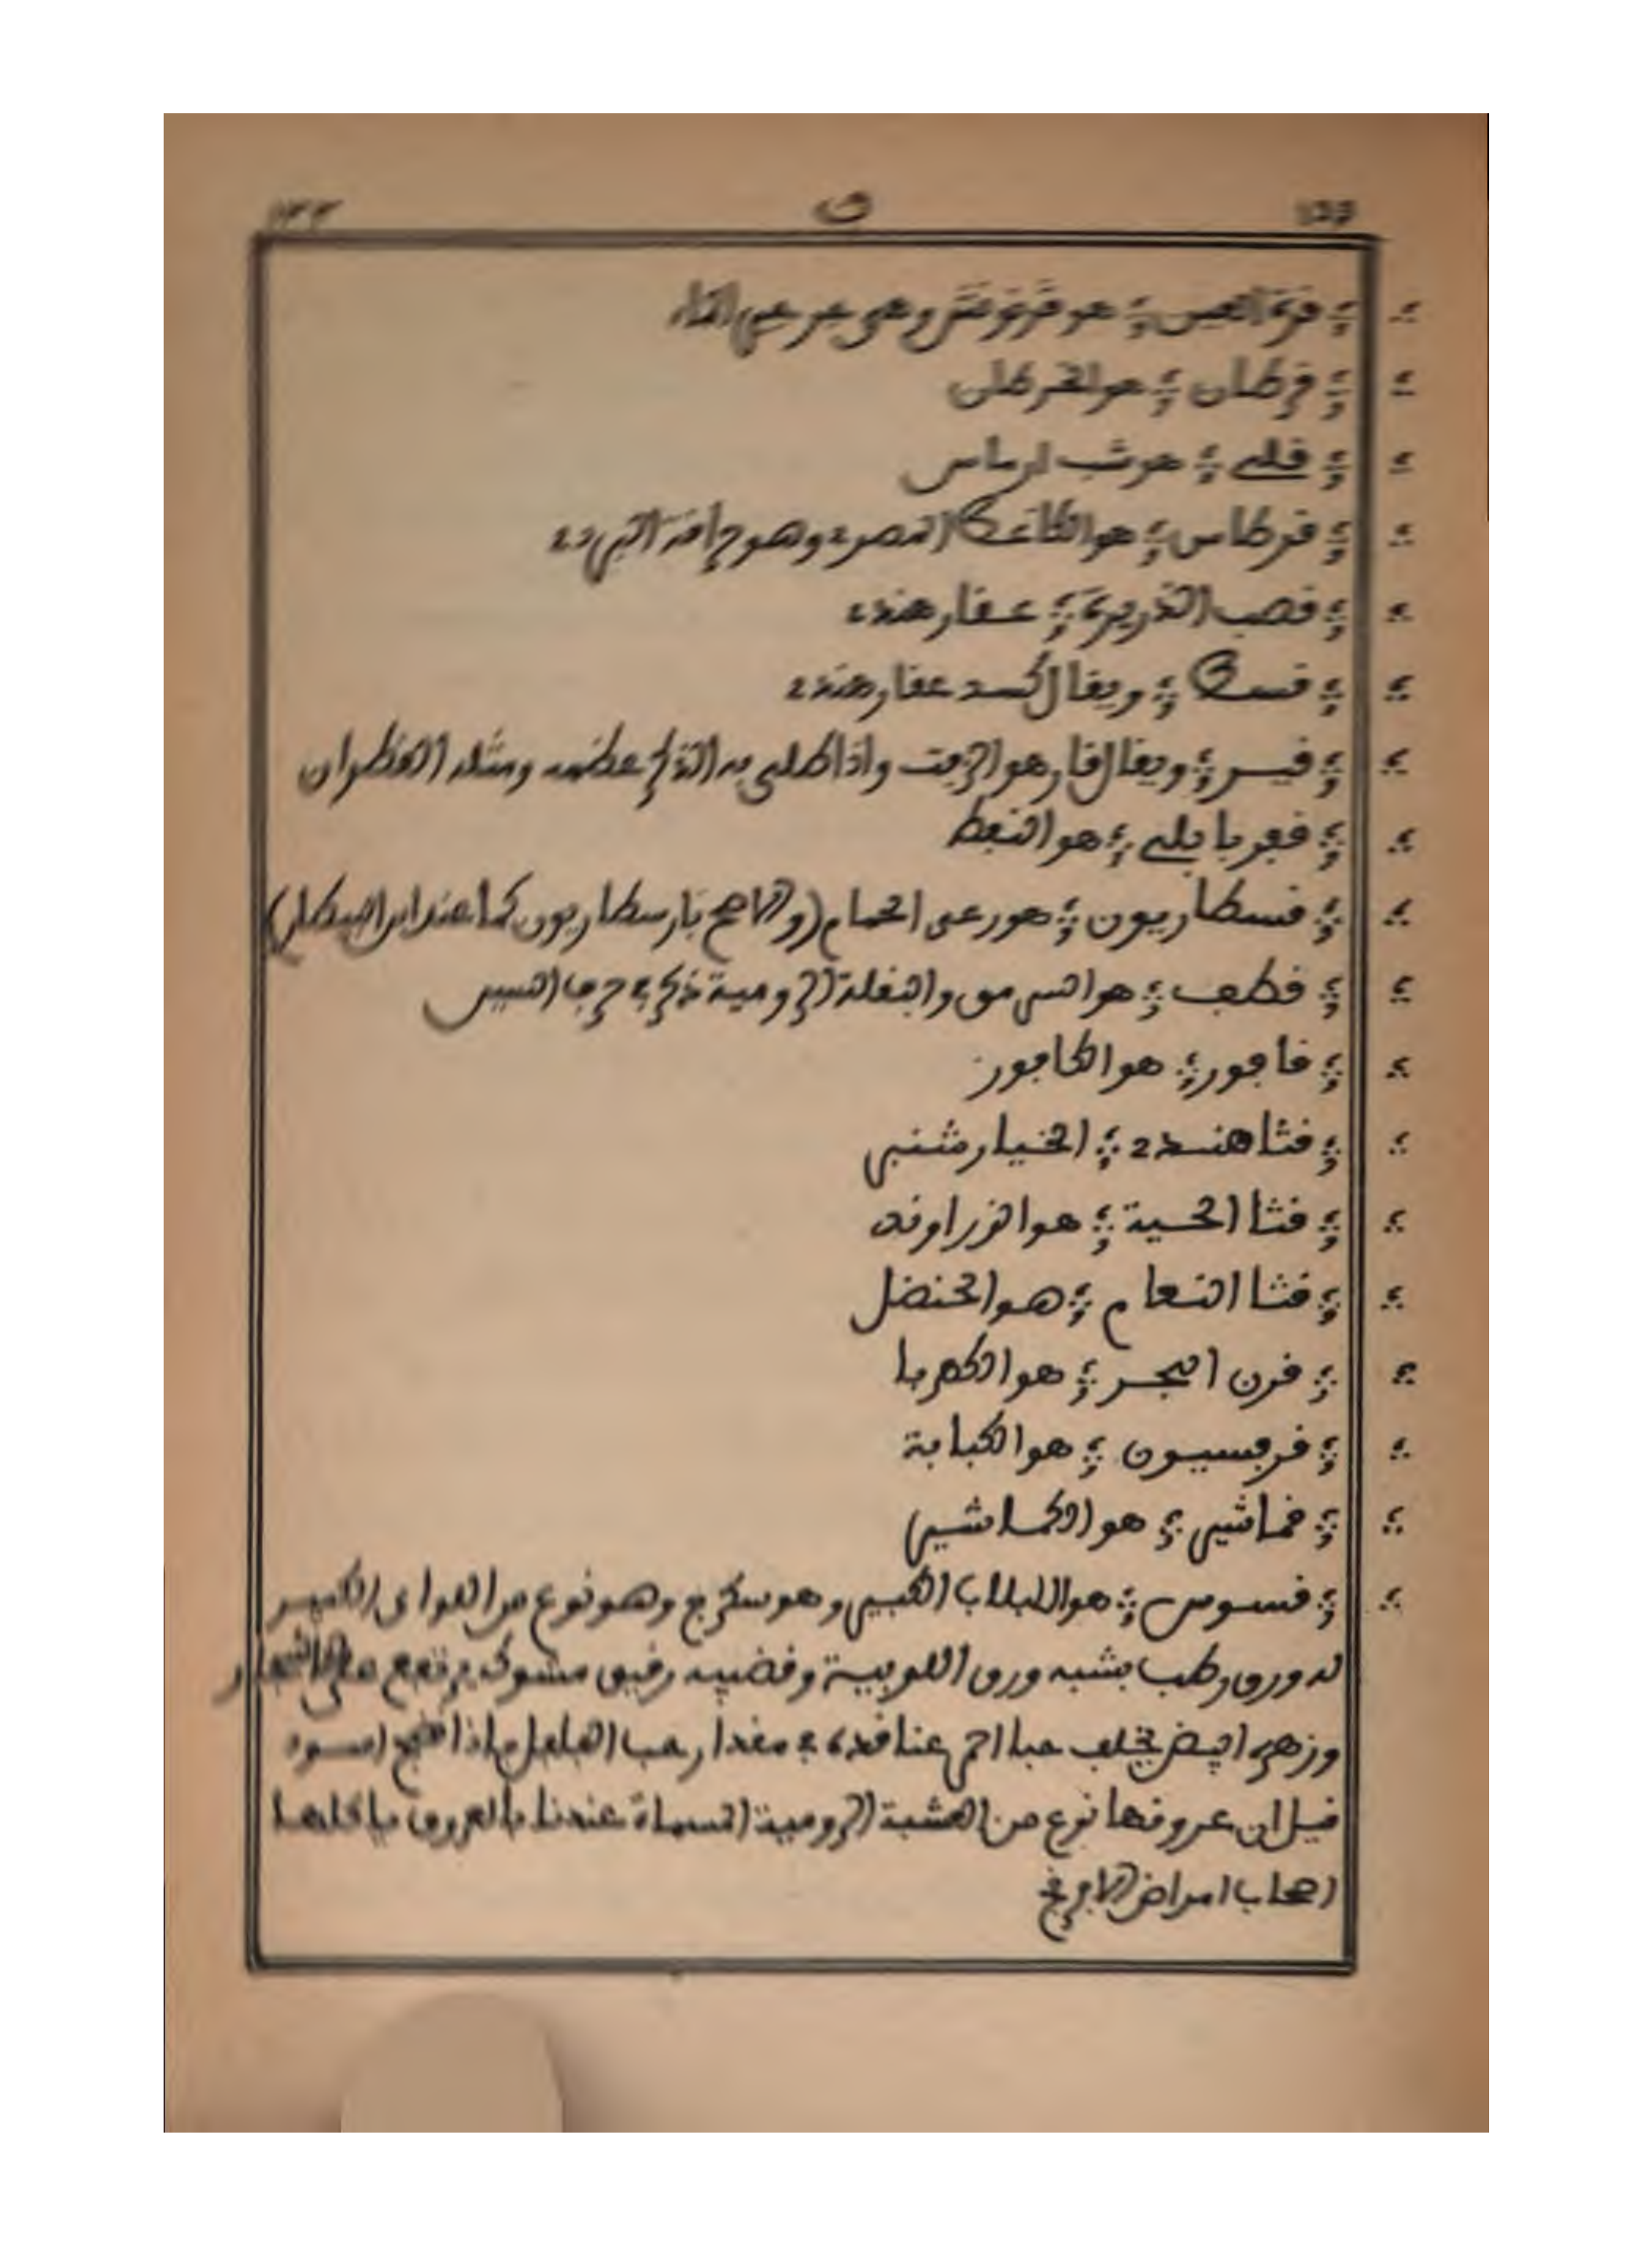 ق
؛ قرة العين ؛ هو قرنونش وهي جرجير الماء
؛ قرطان ؛ هو القرطان
؛ قلي ؛ هو شب
؛ قرطاس ؛ هو الكاغد المصري وهو حراقة البردي
؛ قصب الذريرة ؛ عقار هندي
؛ قسط ؛ ويقال كسد عقار هندي
؛ قير ؛ ويقال قار هو الزفت واذا طلي به الذكر عظمه ومثله القطران
؛ قفر بابلي ؛ هو النفط
؛ قسطاريون ؛ هو رعي الحمام (والاصح بارسطاريون كما عند ابن البيطار)
؛ قطف ؛ هو السرمق والبقلة الرومية ذكر في حرف السين
؛ قافور ؛ هو الكافور
؛ قثا هندي ؛ الخيار شنبر
؛ قثا الحية ؛ هو الزراوند
؛ قثا النعام ؛ هو الحنضل
؛ قرن البحر ؛ هو الكهربا
؛ قرفسيون ؛ هو الكبابة
؛ قماشير ؛ هو الكماشير
؛ قسوس ؛ هو اللبلاب الكبير وهو سكرج وهو نوع من اللواى الكبير
له ورق رطب يشبه ورق اللوبية وقضيبه رقيق مشوك يرتفع على الاشجار
وزهره ابيض يخلف حبا احمر عناقده في مقدار حب الفلفل فاذا نضج اسود
قيل ان عروقها نوع من العشبة الرومية المسماة عندنا بالعروق ياكلها
اصحاب امراض الافرنج